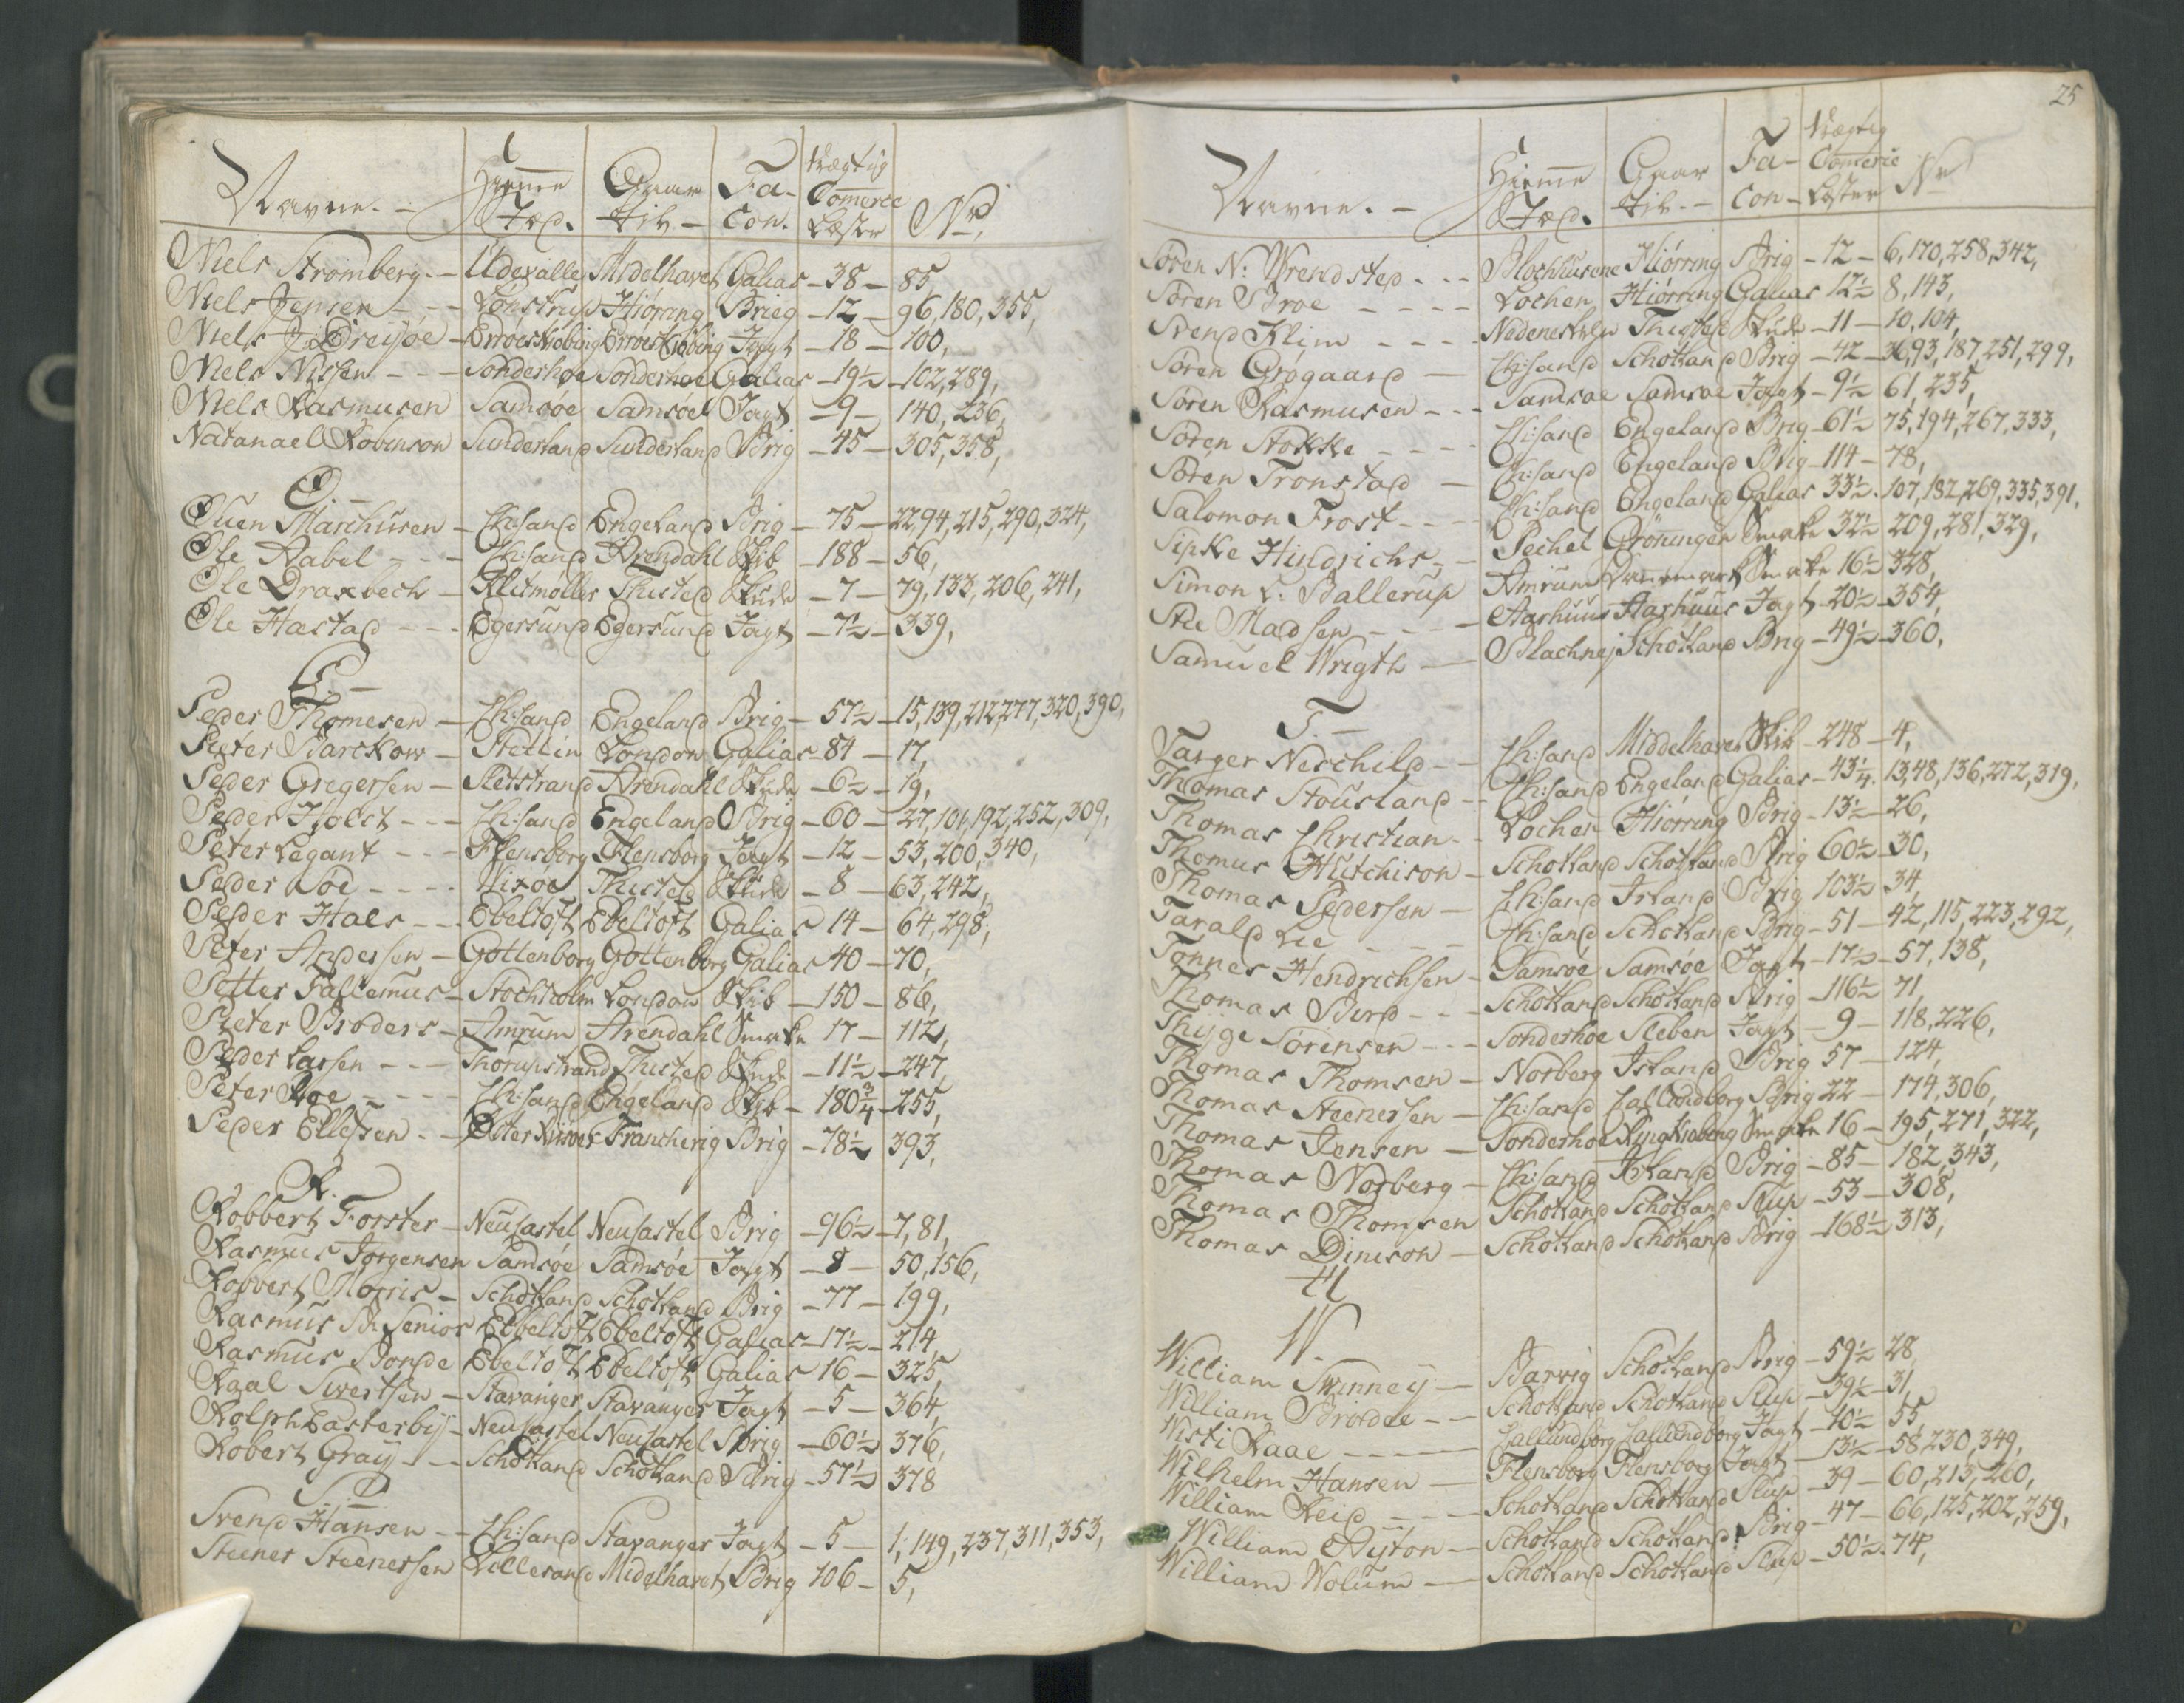 Navne. - Hieme Sted. Gaar til - Fa- Con. Drægtig Comerce Lester No,
Niels Strömberg - Udevalle Midelhavet Galias - 38 - 85,
Niels Jensen - Lönstrup Hiörring Brieg - 12 - 96, 180, 355,
Niels J: Dreijöe - Erroeskiobing Erroeskiöbing Jagt - 18 - 100,
Niels Nissen - Sonderhoe Sonderhoe Galias - 19½ - 102, 289,
Niels Rasmusen Samsöe Samsöe Jagt - 9 - 140, 236,
Natanael Robinson Sunderland Sunderland Brig - 45 - 305, 358,
O. -
Ouen Marchusen - Ch:sand Engeland Brig - 75 - 22, 94, 215, 290, 324,
Ole Rabel - Ch:sand Arendahl Skib - 188 - 56,
Ole Draxbech - Klitmøller Thisted Skude - 7 - 79, 133, 206, 241,
Ole Hæstad - Egersund Egersund Jagt - 7½ - 339,
P. -
Peder Thomesen - Ch:sand Engeland Brig - 57½ - 15, 139, 212, 277, 320, 390,
Pieter Barckow - Stettin London Galias - 84 - 17,
Peder Gregersen - Sletstrand Arendahl Skude - 6½ - 19,
Peder Holct - Ch:sand Engeland Brig - 60 - 27, 101, 192, 252, 309,
Peter Legant - Flensborg Flensborg Jagt - 12 - 53, 200, 340,
Peder Söe - Wixöe Thisted Skude - 8 - 63, 242,
Peder Hals - Ebeltoft Ebeltoft Galias 14 - 64, 298,
Peter Andersen - Gottenborg Gottenborg Galias 40 - 70,
Petter Fallemus - Stockholm London Skib - 150 - 86,
Pieter Broders - Amrum Arendahl Smake 17 - 112,
Peder Larsen - Thorupstrand Thisted Skude - 11½ - 247,
Peter Roe - Ch:sand Engeland Skib - 180¾ - 255,
Peder Ellefsen - Øster Riisöer Franckerig Brig - 78½ 393,
R.
Robbert Forster - Neucastel Neucastel Brig - 96½ - 7, 81,
Rasmus Jørgensen Samsöe Samsöe Jagt - 8 - 50, 156,
Robbert Morris - Schotland Schotland Brig - 77 - 199,
Rasmus Senior Ebeltoft Ebeltoft Galias - 17½ - 214,
Rasmus Bonde Ebeltoft Ebeltoft Galias 16 - 325,
Raal Sivertsen - Stavanger Stavanger Jagt - 5 - 364,
Rolph Easterby - Neucastel Neucastel Brig - 60½ 376,
Robert Gray - Schotland Schotland Brig - 57½ 378
S -
Svend Hansen - Ch:sand Stavanger Jagt - 5 - 1, 149, 237, 311, 353,
Steener Steenersen Lillesand Midelhavet Brig 106 - 5,
25
Navne. - Hieme Sted. Gaar til. - Fa- Con - Drægtig Comerce Lester Nr
Sören N: Wrendsted - Blochhusene Hiörring Brig - 12 - 6, 170, 258, 342,
Sören Broe - Lochen Hiörring Galias 12½ 8, 143,
Svend Klim - Thisted Skude - 11 - 10, 104,
Sören Grøgaard - Ch:sand Schotland Brig - 42 - 36, 93, 187, 251, 299,
Sören Rasmusen - Samsoe Samsoe Jagt - 9½ 61, 235,
Sören Stokke - Ch:sand Engeland Brig - 61½ 75, 194, 267, 333,
Sören Tronstad - Ch:sand Engeland Brig - 114 - 78,
Salomon Frost - Ch:sand Engeland Galias 33½ - 107, 182, 269, 335, 391,
Sipke Hindrichs - Pechel Grönningen Smake 32½ 209, 281, 329,
Simon L: Ballerup Amrum Danemark Smake 16½ 328,
Ste Madsen - Aarhuus Aarhuus Jagt - 20½ - 354,
Samuel Wrigth - Blachnej Schotland Brig - 49½ - 360,
T. -
Targer Neschild - Ch:sand Middelhavet Skib - 248 - 4,
Thomas Stousland - Ch:sand Engeland Galias - 43¼ - 13, 48, 136, 272, 319,
Thomas Christian - Lochen Hiörring Brig - 13½ - 26,
Thomus Hutchison - Schotland Schotland Brig 60½ - 30,
Thomas Pedersen - Ch:sand Irland Brig 103½ 34,
Tarald Lie - Ch:sand Schotland Brig - 51 - 42, 115, 223, 292,
Tönnes Hendrichsen - Samsöe Samsöe Jagt - 17½ - 57, 138,
Thomas Burd - Schotland Schotland Brig - 116½ 71
Thyge Sörensen - Sonderhoe Sleben Jagt - 9 - 118, 226,
Thomas Thomsen - Norberg Island Brig 57 - 124,
Thomas Steenersen - Ch:sand Callundborg Brig 22 - 174, 306,
Thomas Jensen - Sonderhoe Ringkiöbing Smake 16 - 195, 271, 322,
Thomas Norberg - Ch:sand Irland Brig - 85 - 182, 343,
Thomas Thomsen Schotland Schotland Slup - 53 - 308,
Thomas Dinison - Schotland Schotland Brig - 168½ 313,
U
W.
William Swinney - Barvig Schotland Brig - 59½ 28,
William Brodee - Schotland Schotland Slup - 39½ - 31,
Wisti Kaae - Callundborg Callundborg Jagt - 10½ 55,
Wilhelm Hansen - Flensborg Flensborg Jagt - 13½ - 58, 230, 349,
William Reid - Schotland Schotland Slup - 39 - 60, 213, 260,
William Øyton - Schotland Schotland Brig - 47 - 66, 125, 202, 259,
William Wolum - Schotland Schotland Slup - 50½ - 74,